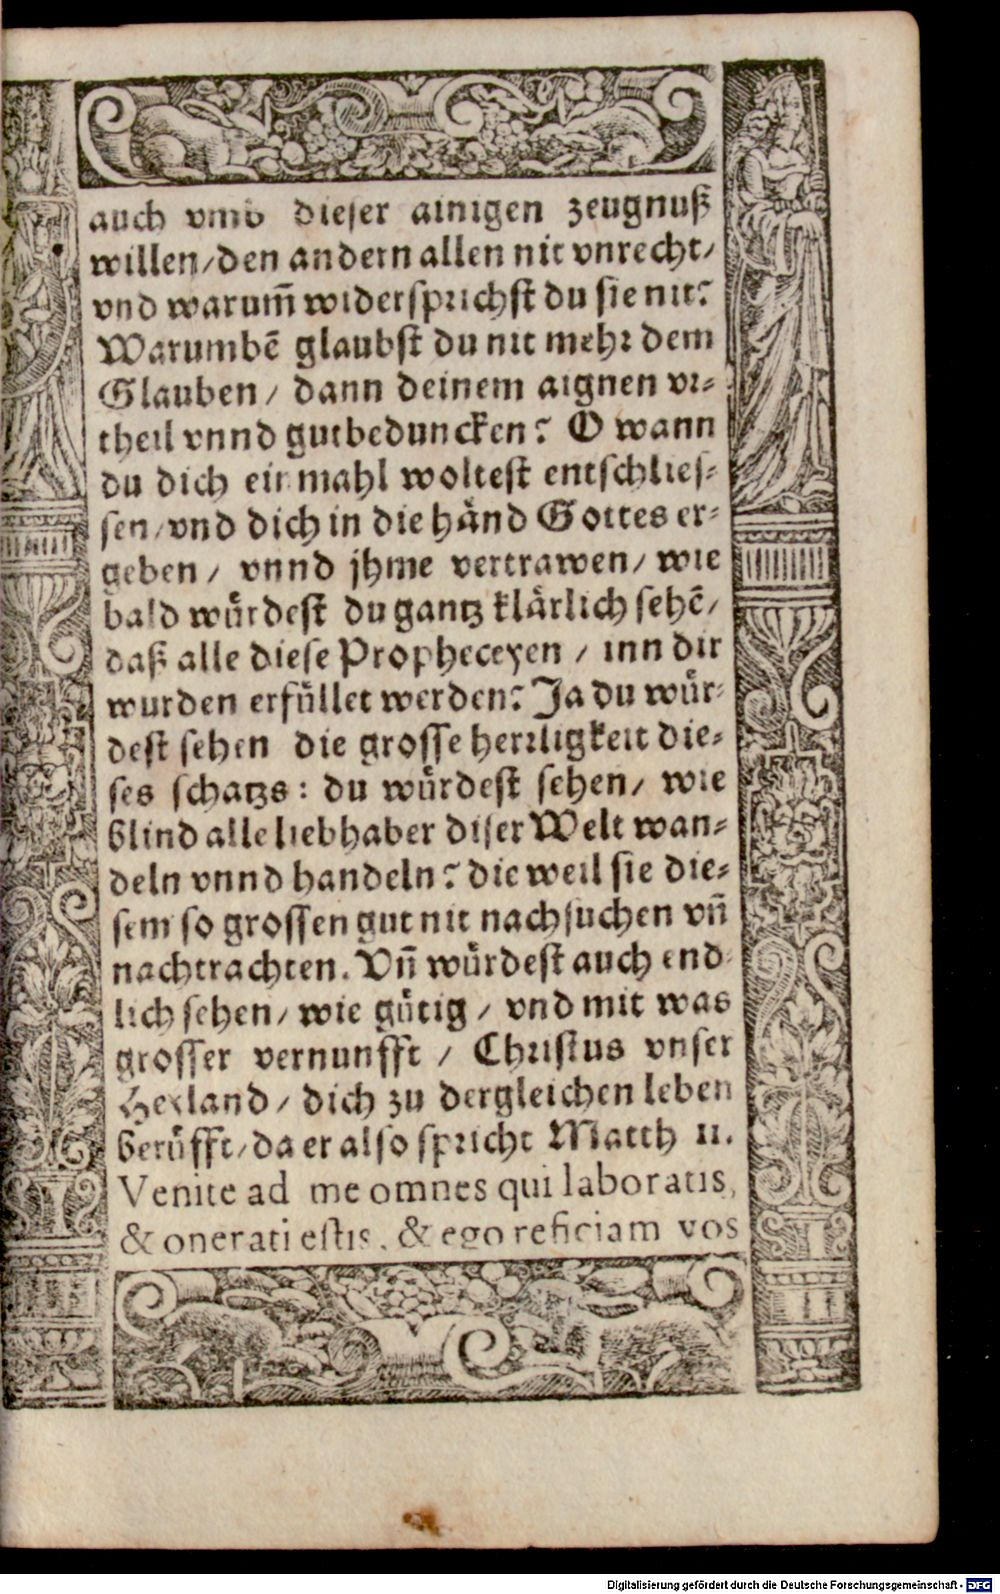 auch vmb dieser ainigen zeugnuß
willen/den andern allen nit vnrecht/
vnd warum̃ widersprichst du sie nit?
Warumbẽ glaubst du nit mehr dem
Glauben / dann deinem aignen vr-
theil vnnd gutbeduncken? O wann
du dich ein mahl woltest entschlies-
sen/vnd dich in die händ Gottes er-
geben / vnnd jhme vertrawen/ wie
bald würdest du gantz klärlich sehẽ/
daß alle diese Propheceyen / inn dir
wurden erfüllet werden? Ja du wür-
dest sehen die grosse herrligkeit die-
ses schatzs: du würdest sehen/ wie
blind alle liebhaber diser Welt wan-
deln vnnd handeln? die weil sie die-
sem so grossen gut nit nachsuchen vñ
nachtrachten. Vñ würdest auch end-
lich sehen/ wie gütig / vnd mit was
grosser vernunfft / Christus vnser
Heyland / dich zu dergleichen leben
berüfft/da er also spricht Matth 11.
Venite ad me omnes qui laboratis,
& onerati estis, & ego reficiam vos
Digitalisierung gefördert durch die Deutsche Forschungsgemeinschaft - DFG